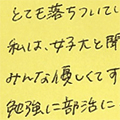 とても落ちついてい
私は、女子大と聞
みんな優しくてす
勉強に部活に